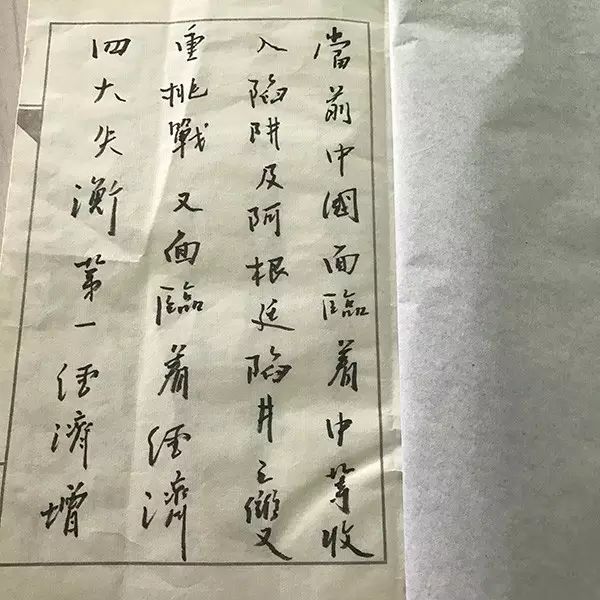 當前中國面臨着中等收
入陷阱及阿根廷陷井之雙
重挑戰又面臨着經濟
四大失衡第一經濟增